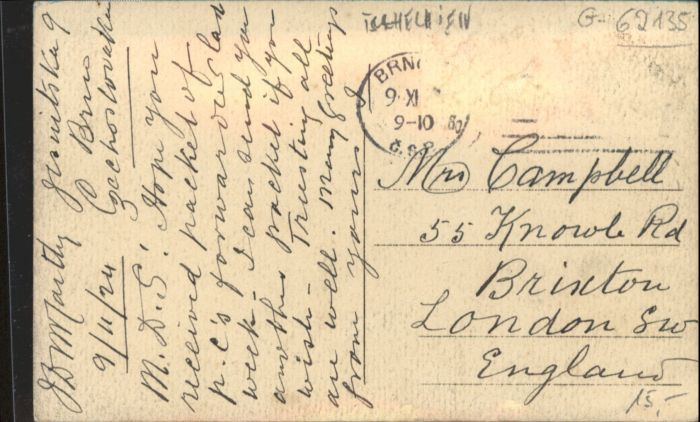 J D McCarthy
9/11/24
Brno
Czechoslovakia
M.D.S! Hope you
received packet of
p.c's forwarded last
week. I can send you
another packet if you
wish - Trusting all
are well. Many greetings
from yours
TSCHECHIEN
G- 62135
BRNO
9 XI
9-10
Mrs Campbell
55 Knowle Rd
Brixton
London SW
England
15,-